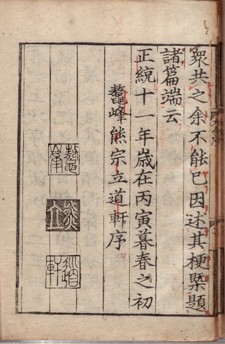 衆共之余不能已因述其梗槩題
諸篇端云
正統十一年歳在丙寅暮春之初
鰲峰熊宗立道軒序